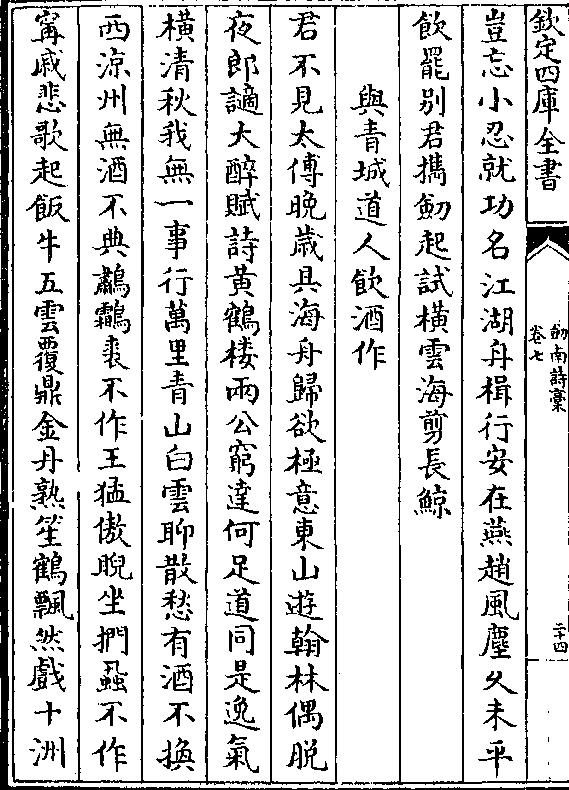 欽定四庫全書
劒南詩稾
卷七
二十四
豈忘小忍就功名江湖舟楫行安在燕趙風塵久未平
飲罷别君攜劒起試橫雲海剪長鯨
與青城道人飲酒作
君不見太傅晚歳具海舟歸欲極意東山遊翰林偶脱
夜郎謫大醉賦詩黄鶴樓兩公窮達何足道同是逸氣
橫清秋我無一事行萬里青山白雲聊散愁有酒不換
西涼州無酒不典鷫鸘裘不作王猛傲睨坐捫蝨不作
甯戚悲歌起飯牛五雲覆鼎金丹熟笙鶴飄然戲十洲